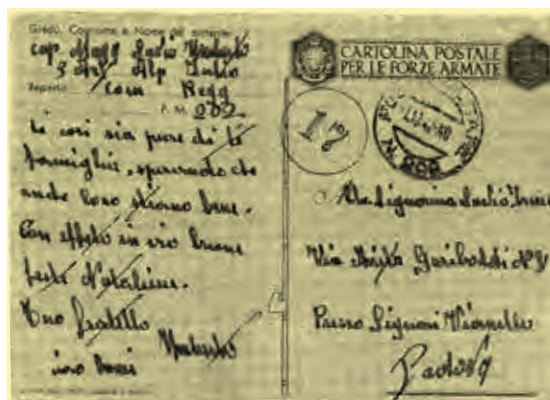 Grado, Cognome e Nome del mittente
cap. Magg Umberto
3 Art Alp Julia
Reparto Com Regg
P. M. 202
ti così sia pure di te
famiglia, sperando che
anche loro stiano bene.
Con affetto in vio buone
feste Natalizie.
Tuo fratello
Umberto
CARTOLINA POSTALE
PER LE FORZE ARMATE
17
Alla Signorina
Via Anita Garibaldi N°
Presso Signori Vianello
Padova